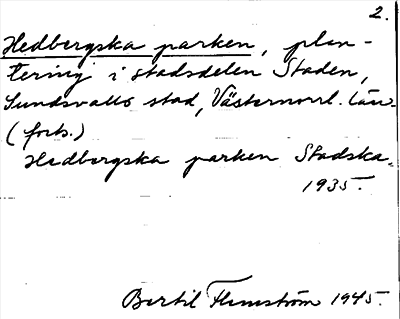 2.
Hedbergska parken, plan-
tering i stadsdelen Staden,
Sundsvalls stad, Västernorrl. län
(forts.)
Hedbergska parken Stadska.
1935.
Bertil Flemström 1945.